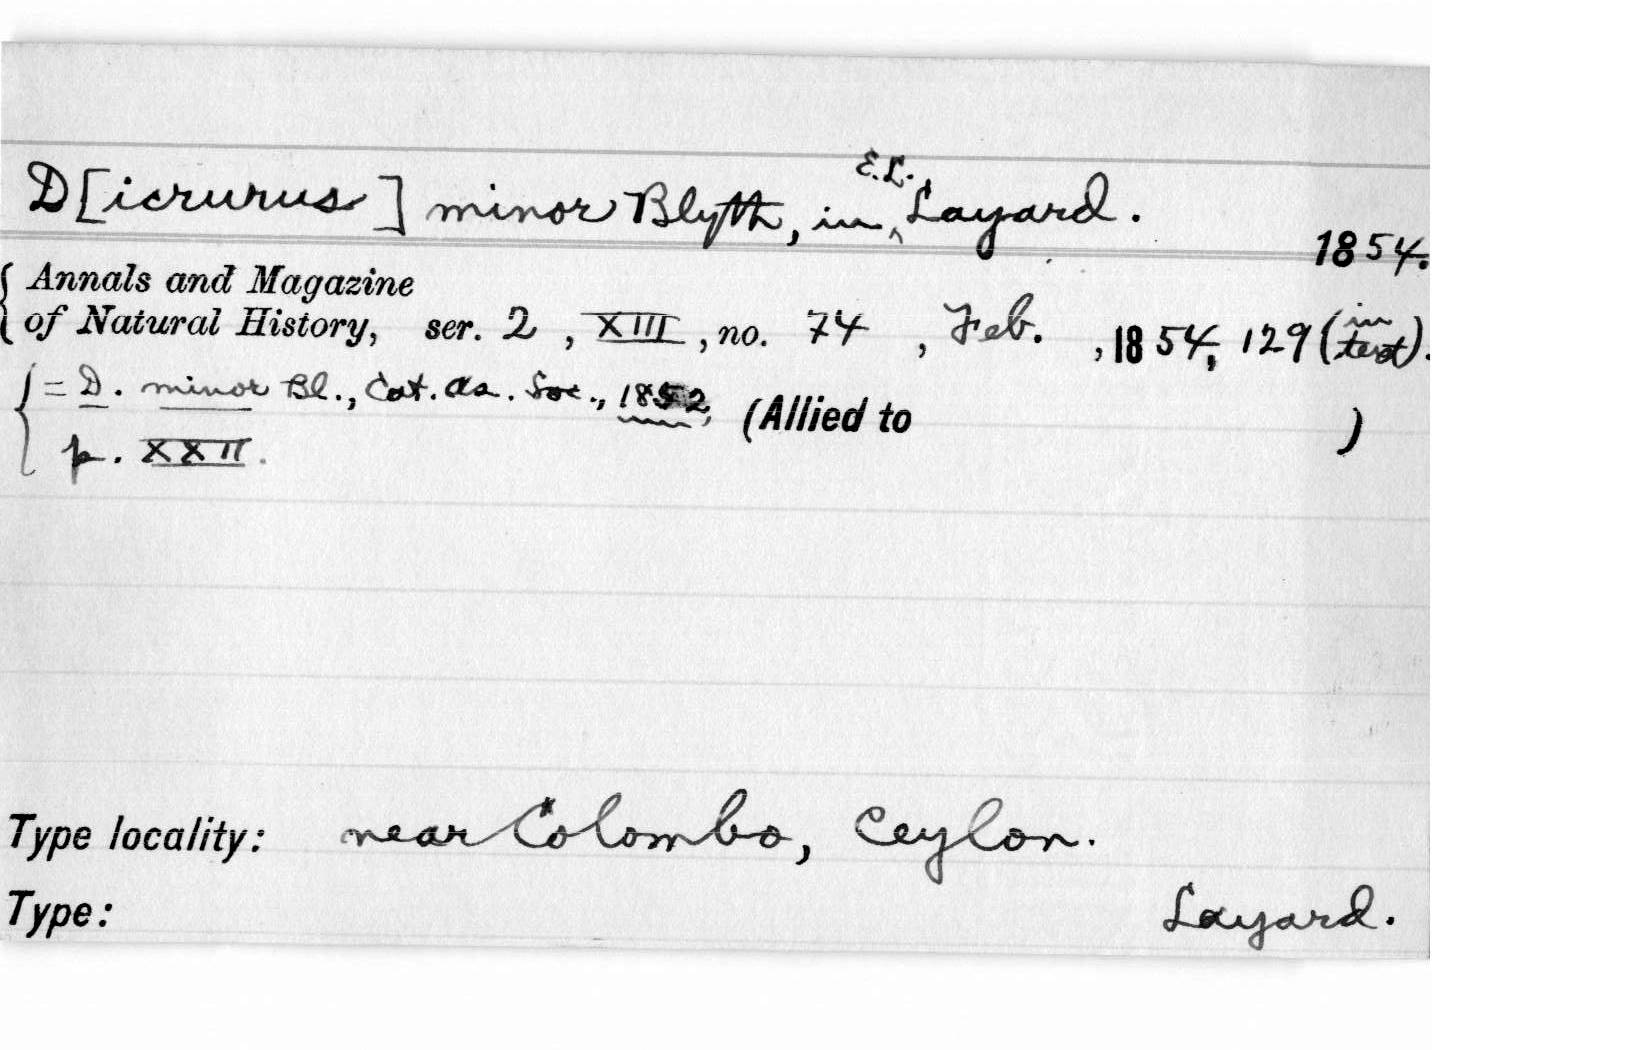 D[icrurus] minor Blyth, in E.L. Layard.
1854.
Annals and Magazine
of Natural History, ser. 2, XIII, no. 74, Feb., 1854, 129 (in text).
= D. minor Bl., Cat. As. Soc., 1852, (Allied to )
p. XXII.
Type locality: near Colombo, Ceylon.
Type: Layard.